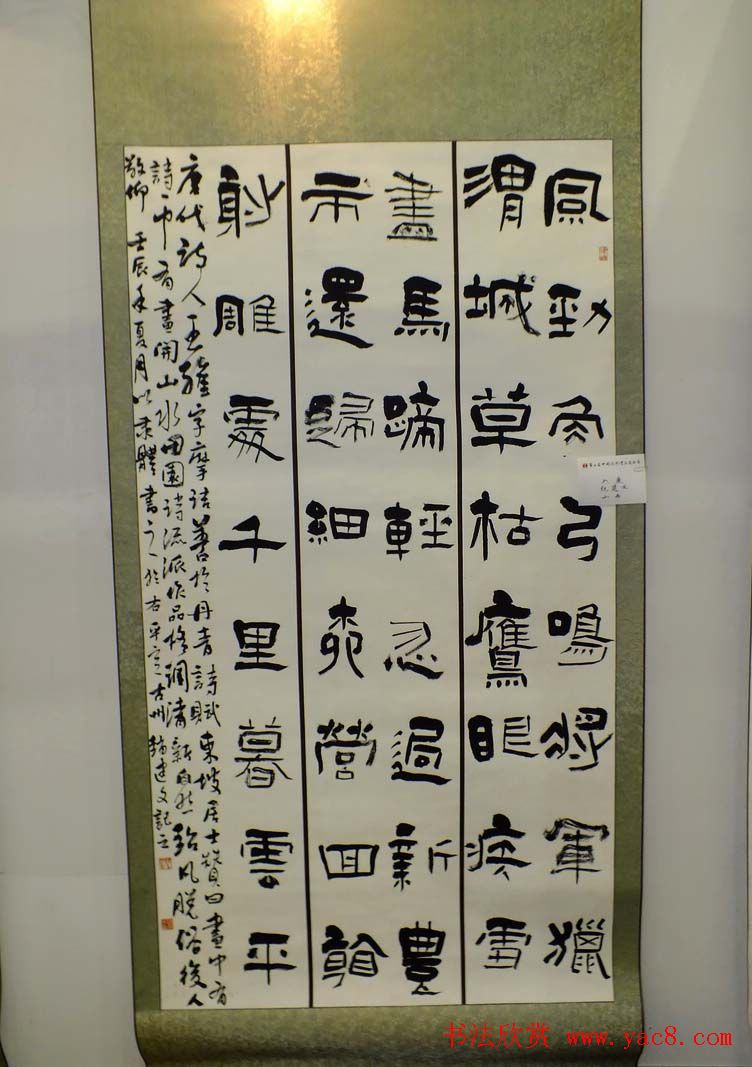 風勁角弓鳴將軍獵
渭城草枯鷹眼疾雪
盡馬蹄輕忽過新豐
市還歸細柳營回看
射雕處千里暮雲平
唐代詩人王維字摩詰善於丹青詩賦東坡居士贊曰畫中有
詩中有畫開山水田園詩流派作品格調清新自然脫俗後人
敬仰 壬辰年夏月以隸體書之於古州建文記之
书法欣赏 www.yac8.com